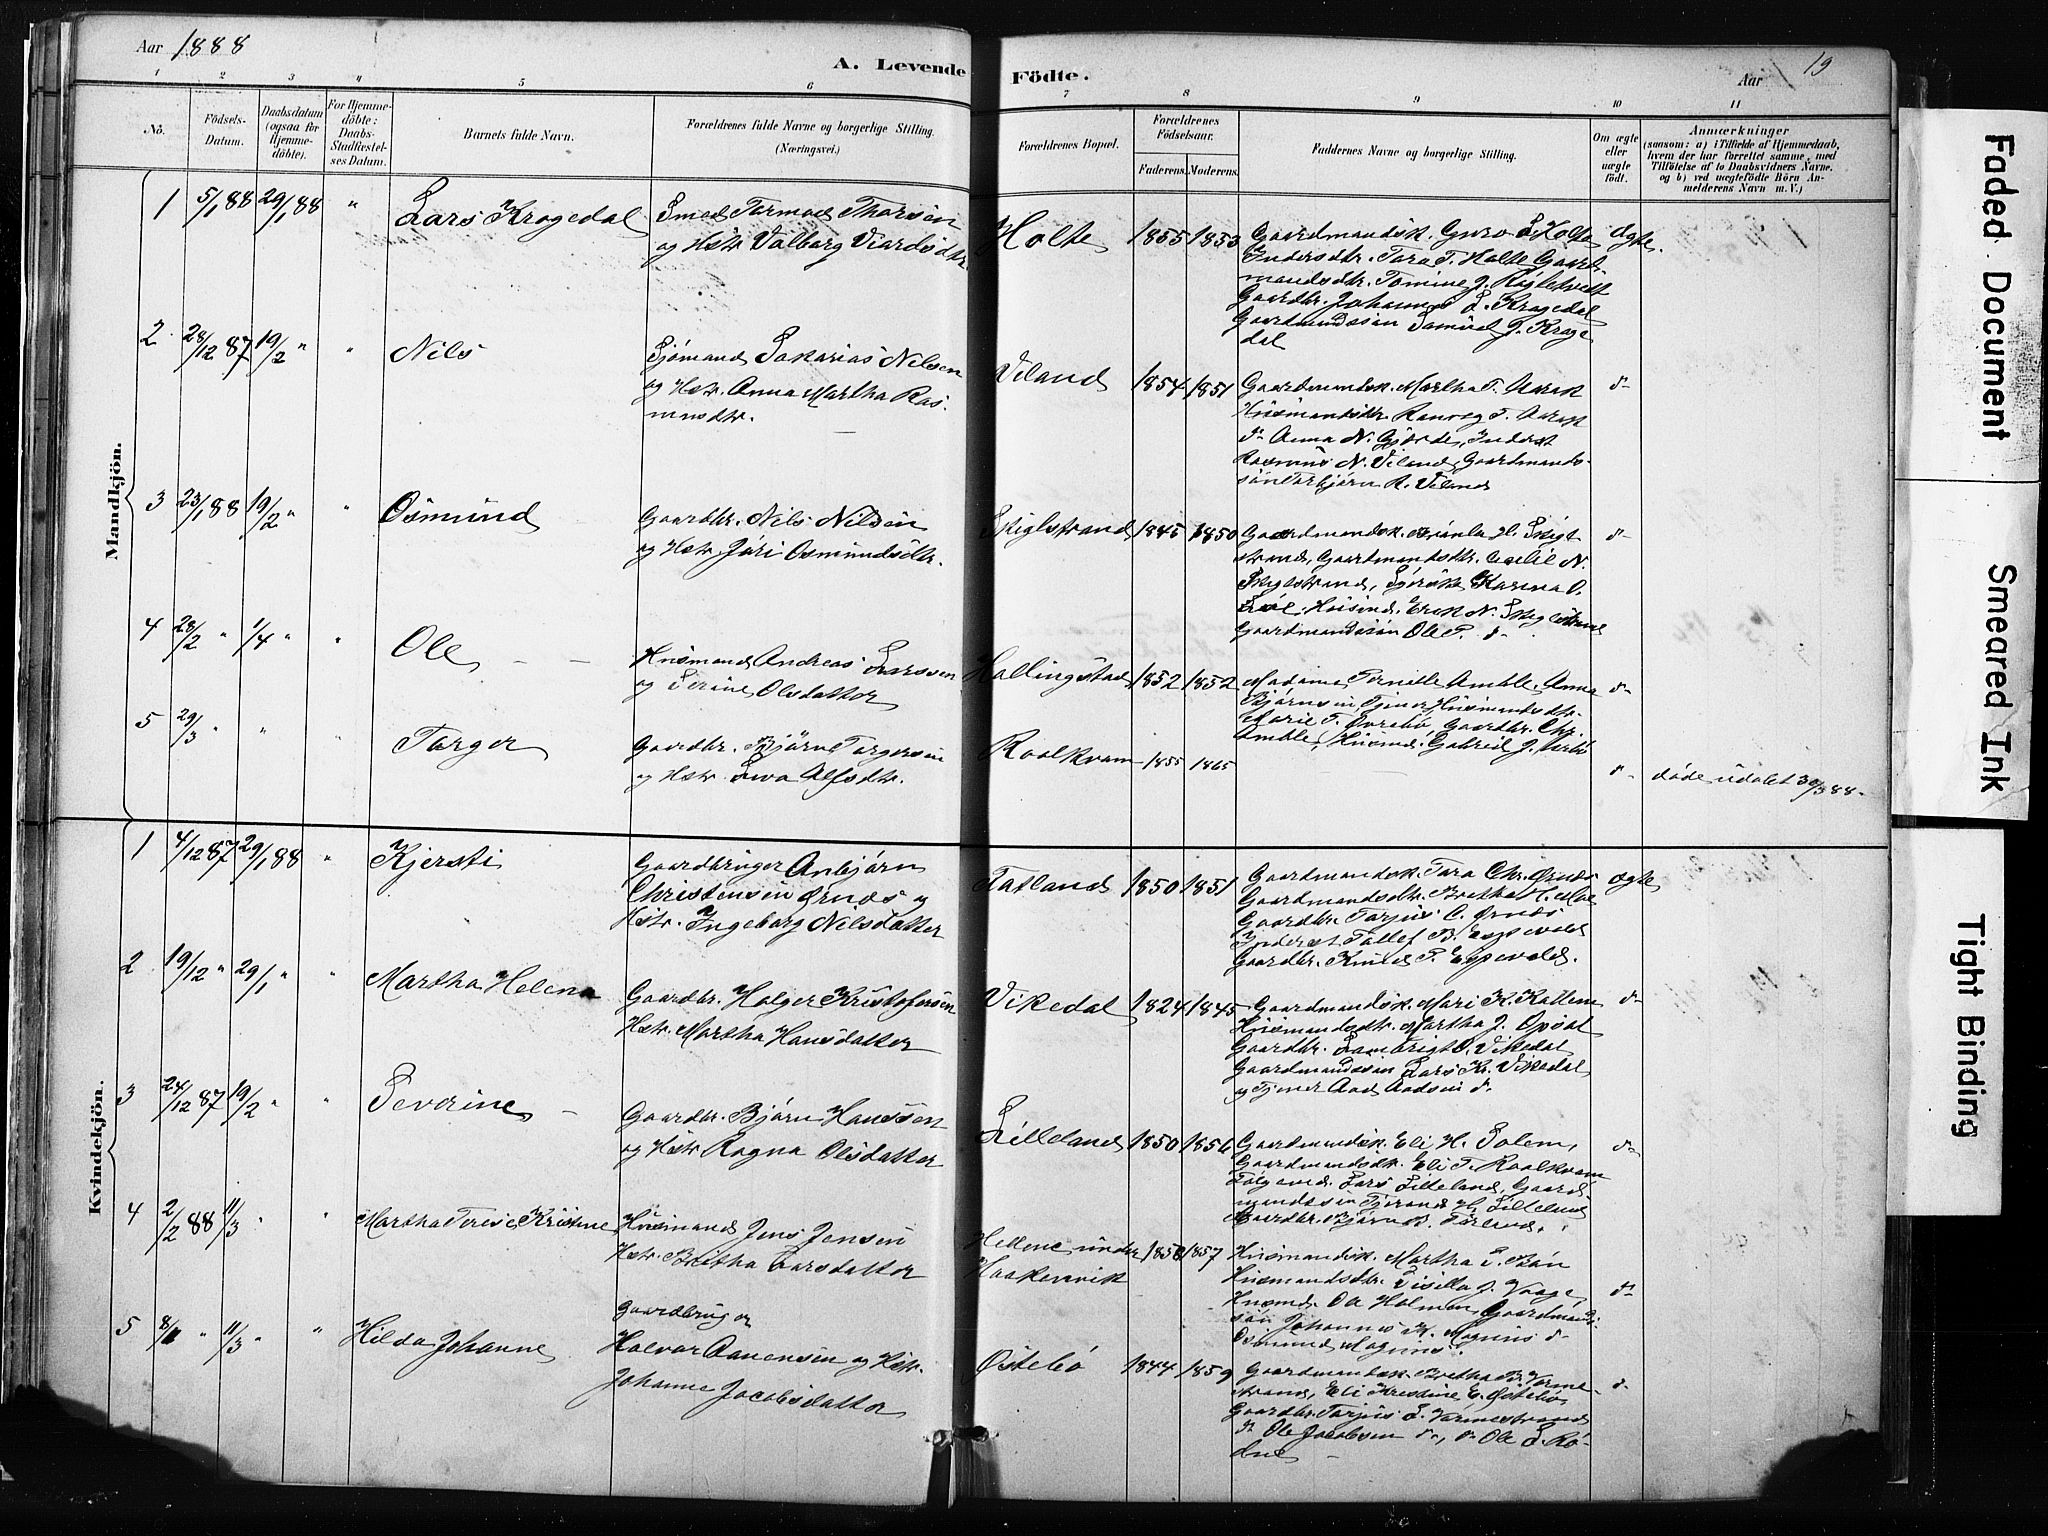 Aar 1888
A. Levende Fødte.
Aar 19
1 2 3 " 5 6 7 8 9 10 11
No.
Födsels-
Datum.
Daabsdatum
(ogsaa for
Hjemme-
döbte).
For Hjemme-
döbte:
Daabs-
Stadfæstel-
ses Datum.
Barnets fulde Navn.
Forældrenes fulde Navne og borgerlige Stilling.
(Næringsvei.)
Forældrenes Bopæl.
Forældrenes
Födselsaar.
Faderens.
Moderens.
Faddernes Navne og borgerlige Stilling.
Om ægte
eller
uægte
födt.
Anmærkninger
(saasom: a) i Tilfælde af Hjemmedaab,
hvem der har forrettet samme, med
Tilföielse af to Daabsvidners Navne.
og b) ved uægtefödte Börn An-
melderens Navn m. V.)
Mandkjön.
1 5/1 88 29/1 88 " Lars Kragedal
Smed Tormod Thorsen
og Hstr Valborg
Holte 1855 1853
Gaardmandsk. Guro L Holte
Indersdtr. Tora T. Holte Gaard-
mandsdtr. Tomine J.
Gaardbr. Johannes L. Kragedal
Gaardmandssön Samuel J. Krage
dal
ægte.
2 28/12 87 19/2 " " Nils
Sjömand Sakarias Nilsen
og Hstr. Anna Martha Ras-
musdtr.
Viland 1854 1851
Gaardmandsk. Martha T.
Husmandsdtr. Ranveg T.
dr Anna N. Gjerde, Inderst
Rasmus N. Viland, Gaardmands-
sön Torbjörn R. Viland
d-
3 23/1 88 19/2 " " Osmund
Gaardbr. Nils Nilsen
og Hstr Jöri Osmundsdtr.
Skiglstrand 1845 1850
Gaardmandsk. H. Skigl
strand, Gaardmandsdtr. Cecilie N.
Skiglstrand, Karina O.
Husmd. Erik N. Skiglstrand
Gaardmandssön Ole P. d-
d-
4 28/2 " 1/4 " " Ole
Husmand Andreas Larssen
og Serine Olsdatter
Hallingstad 1852 1852
Madame Pernille Amble, Anna
Björnsen, Tjener, Husmandsdtr
Marie T. Övrebö, Gaardbr. Chr.
Amble, Husmd. Gabriel J.
d-
5 29/3 " " " Torger
Gaardbr. Björn Torgersen
og Hstr. Eva Alfsdtr.
Raalkvam 1855 1865
d- döde udöbt 30/3 88-
Kvindekjön.
1 4/12 87 29/1 88 " Kjersti
Gaardbruger Anbjörn
Christensen Örnæs og
Hstr. Ingeborg Nilsdatter
Tatland 1850 1851
Gaardmandsk. Tora Chr. Örnæs
Gaardmandsdtr. Bretha H. Moe
Gaardbr. Torjus C. Örnæs
Inderst Tollef B. Espevold
Gaardbr. Knud P. Espevold.
ægte
2 19/12 " 29/1 " " Martha Helena
Gaardbr. Holger Kristofersen
Hstr. Martha Hansdatter
Vikedal 1824 1845
Gaardmandsk. Mari K. Kallem
Husmandsdtr. Martha J. Opsal
Gaardbr. Lambrigt O. Vikedal
Gaardmandssön Lars K. Vikedal,
og Tjener Aad Aadsen d-
d-
3 24/12 87 19/2 " " Severine
Gaardbr. Björn Hanssen
og Hstr Ragna Olsdatter
Lilleland 1850 1856
Gaardmandsk. Eli H. Solem,
Gaardmandsdtr. Eli T. Raalkvam
Fölgemd. Lars Lilleland, Gaard-
mandssön Tjerand H. Lilleland
Gaardbr. Björn B. Törland.
d-
4 2/2 88 11/3 " " Martha Terese Kristine
Husmand Jens Jensen
Hstr. Britha Larsdatter
Hellene under
Haakenvik
1850 1857
Husmandsk. Martha
Husmandsdtr. Sisilla J. Vaage
Husmd. Ole Holmen, Gaardmands-
sön Johannes K. Magnus d-
Osmund Magnus.
d-
5 8/1 " 11/3 " " Hilda Johanne
Gaardbruger
Halvor Aanensen og Hstr.
Johanne Jacobsdatter
Östebö 1844 1859
Gaardmandsk. Bretha B. Varme-
strand, Eli Kristine E. Östebö,
Gaardbr Torjus L. Varmestrand
d- Ole Jacobsen d-, d- Ole L. Rö-
dne -
d-
Faded Document
Smeared Ink
Tight Binding